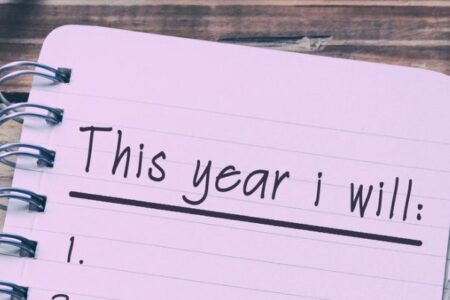 This year i will:
1.